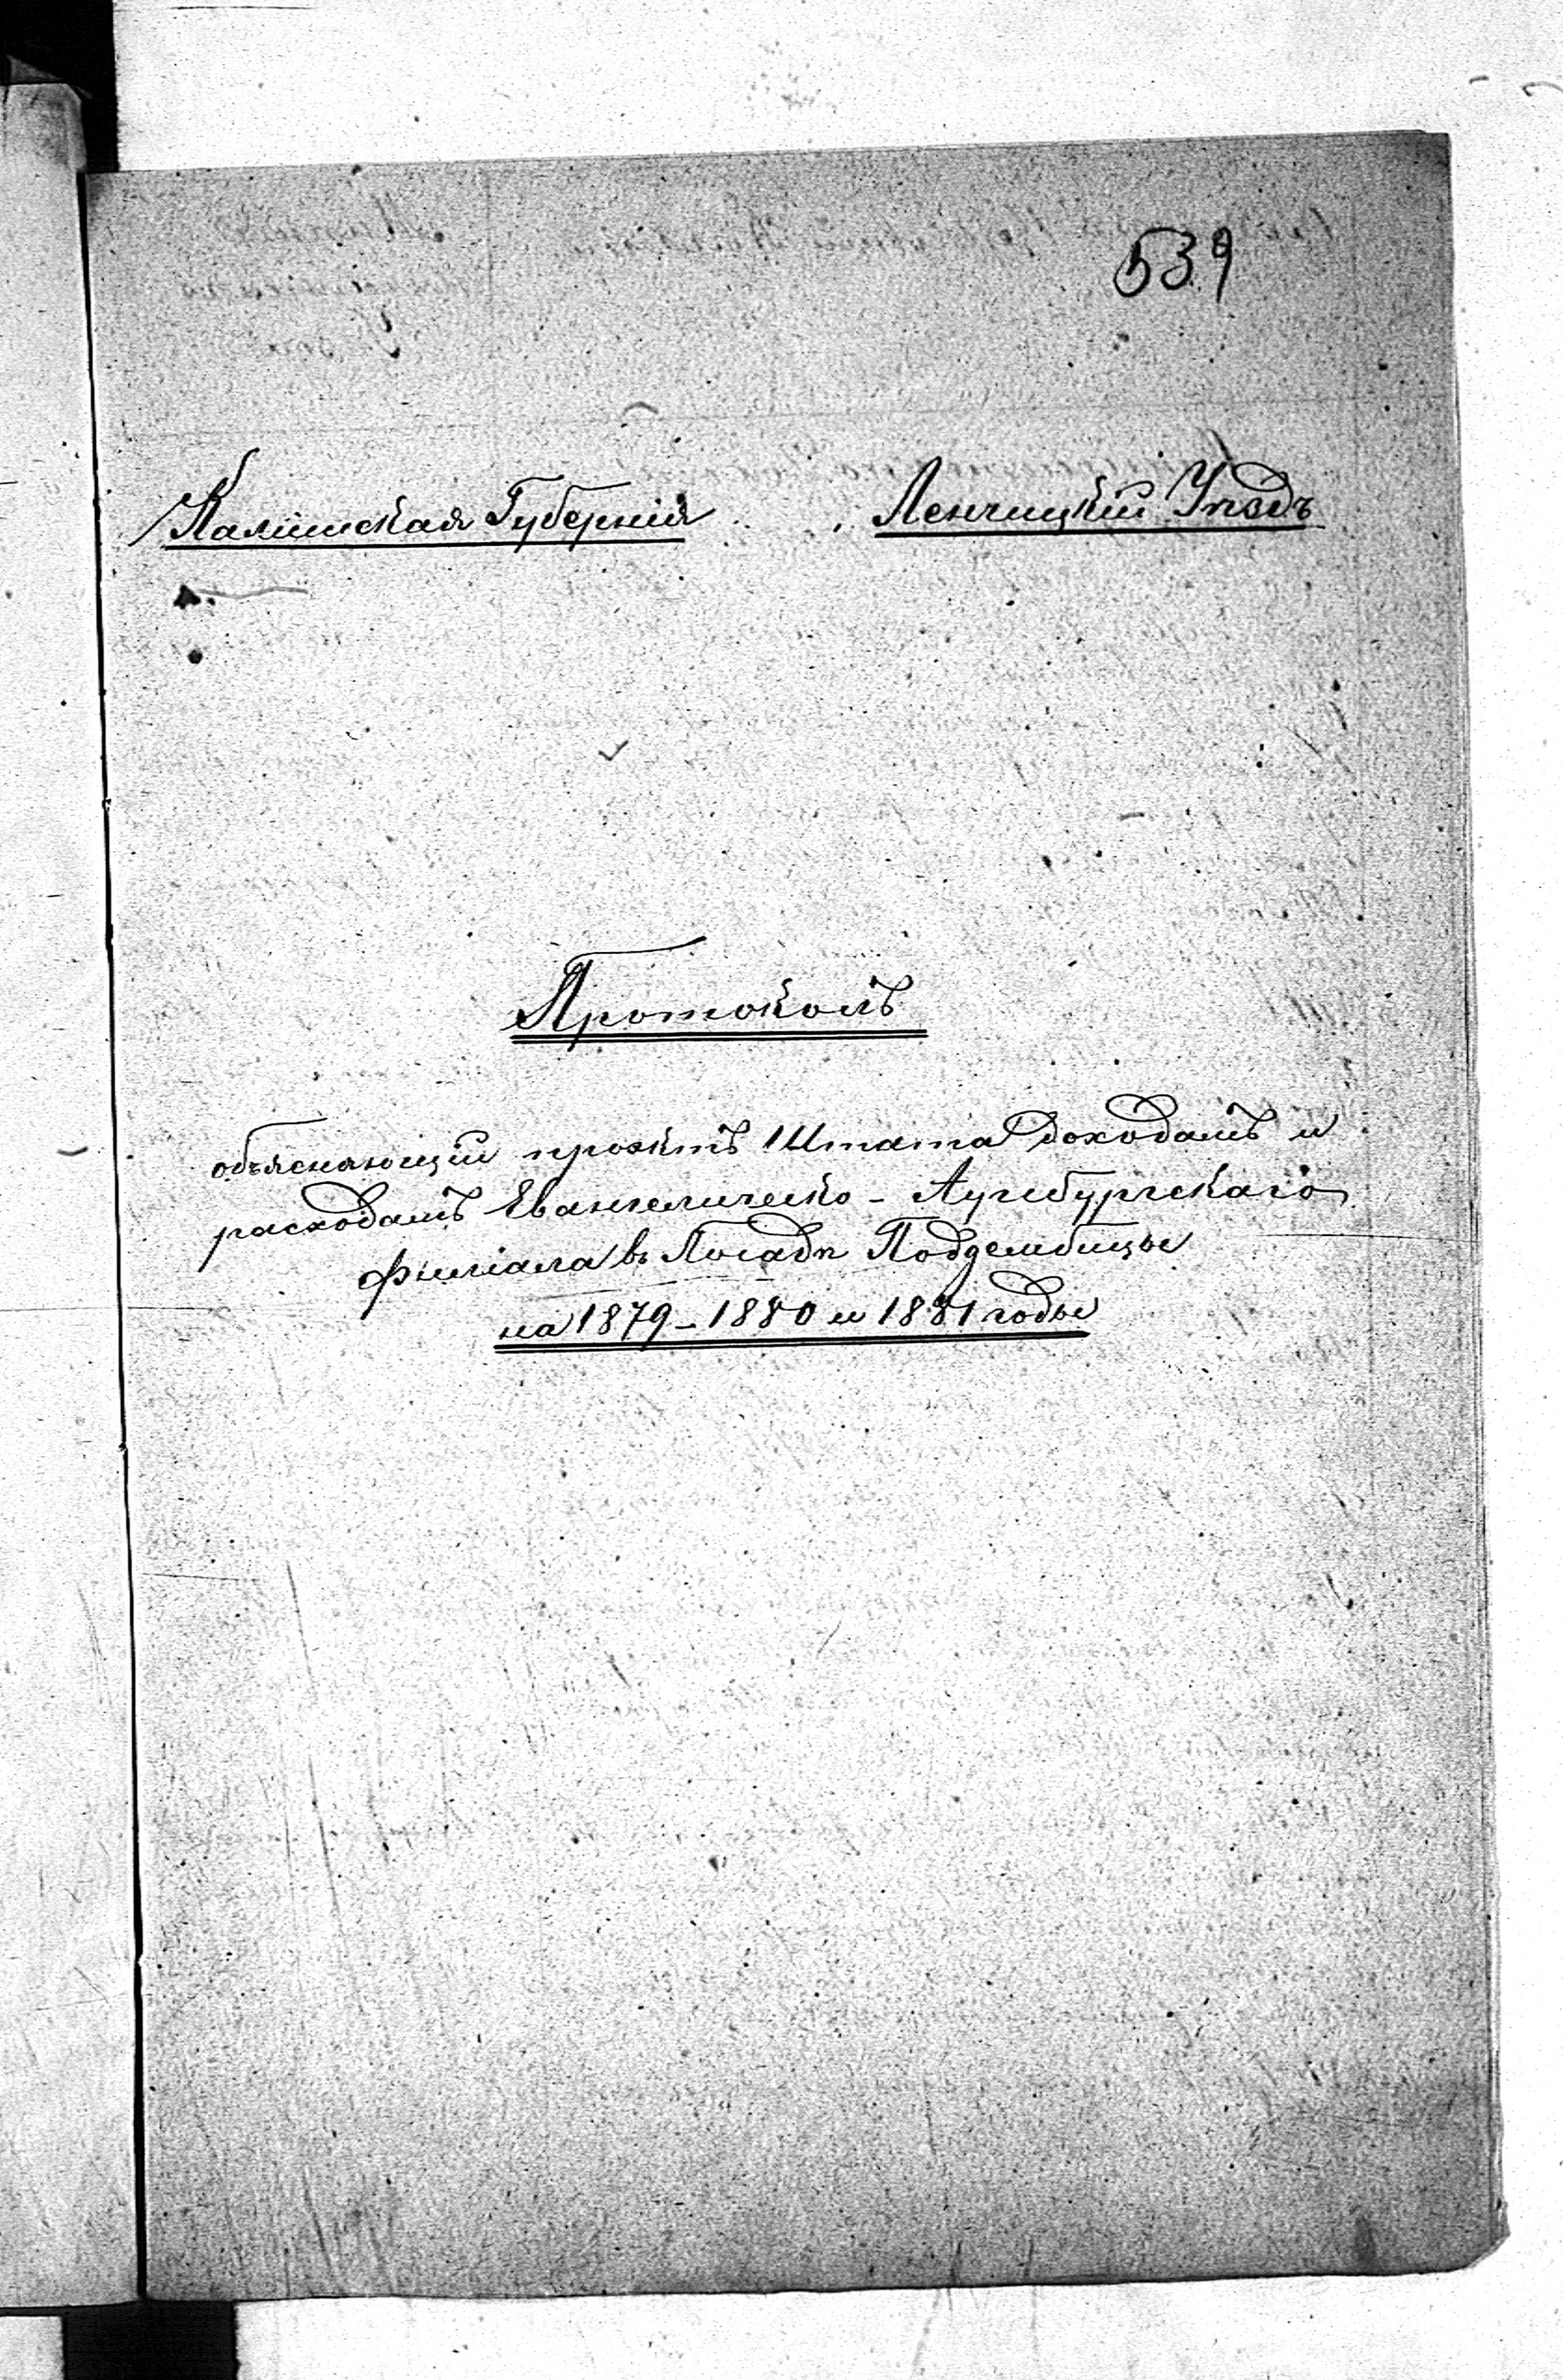 539
Калишская Губернія Ленчицкій Уѣздъ
Протоколъ
объясняющій проэктъ Штата доходамъ и
расходамъ Евангелическо-Аугсбургскаго
филіала въ Посадѣ Поддембицы
на 1879-1880 и 1881 годы